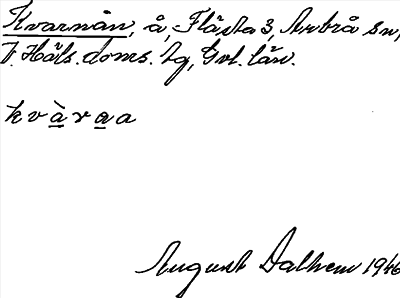 Kvarnån, å, Flästa 3, Arbrå sn,
V. Häls. doms. tg, Gvl. län.
kvàraa
August Dalhem 1946